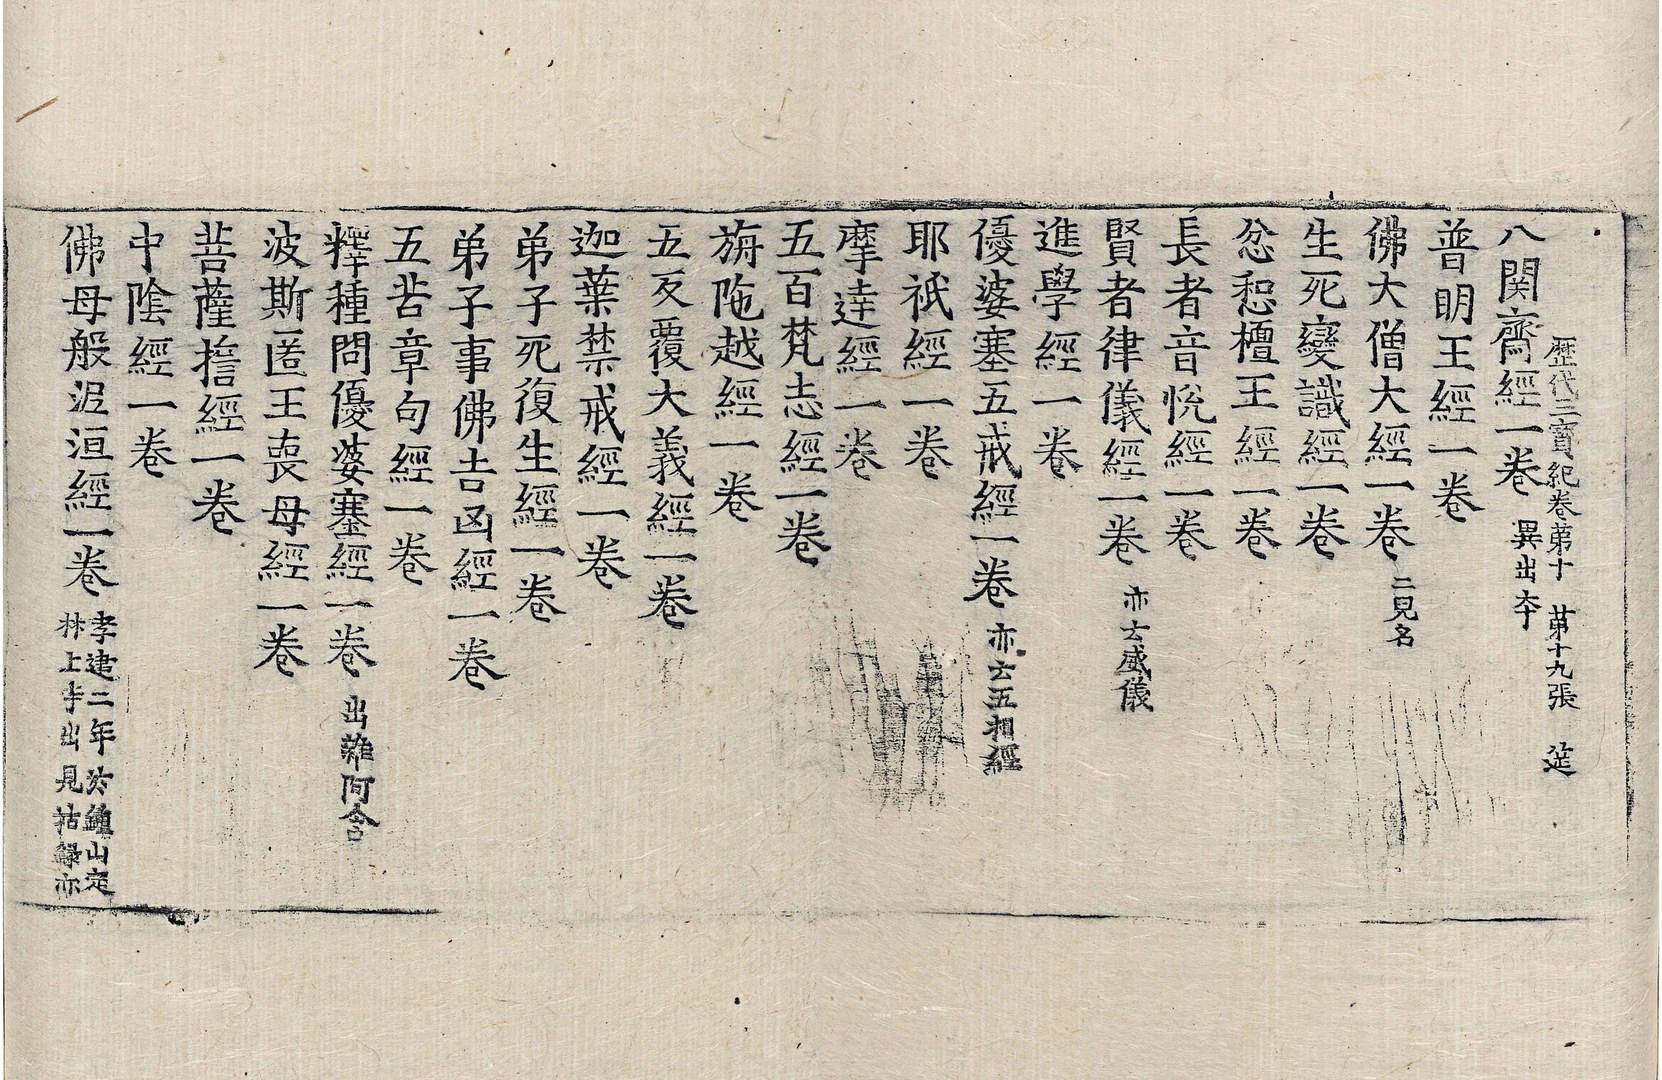 歴代三寶紀卷第十 第十九張 筵
八関齋經一卷 異出本
普明王經一卷
佛大僧大經一卷 二見名
生死變識經一卷
忿恕檀王經一卷
長者音悅經一卷
賢者律儀經一卷 亦云威儀
進學經一卷
優婆塞五戒經一卷 亦云五相經
耶祇經一卷
摩達經一卷
五百梵志經一卷
旃陁越經一卷
五反覆大義經一卷
迦葉禁戒經一卷
弟子死復生經一卷
弟子事佛吉凶經一卷
五苦章句經一卷
釋種問優婆塞經一卷 出雜阿含
波斯匿王喪母經一卷
菩薩誓經一卷
中陰經一卷
佛母般泥洹經一卷 孝建二年於鍾山定
林上寺出見祐錄亦